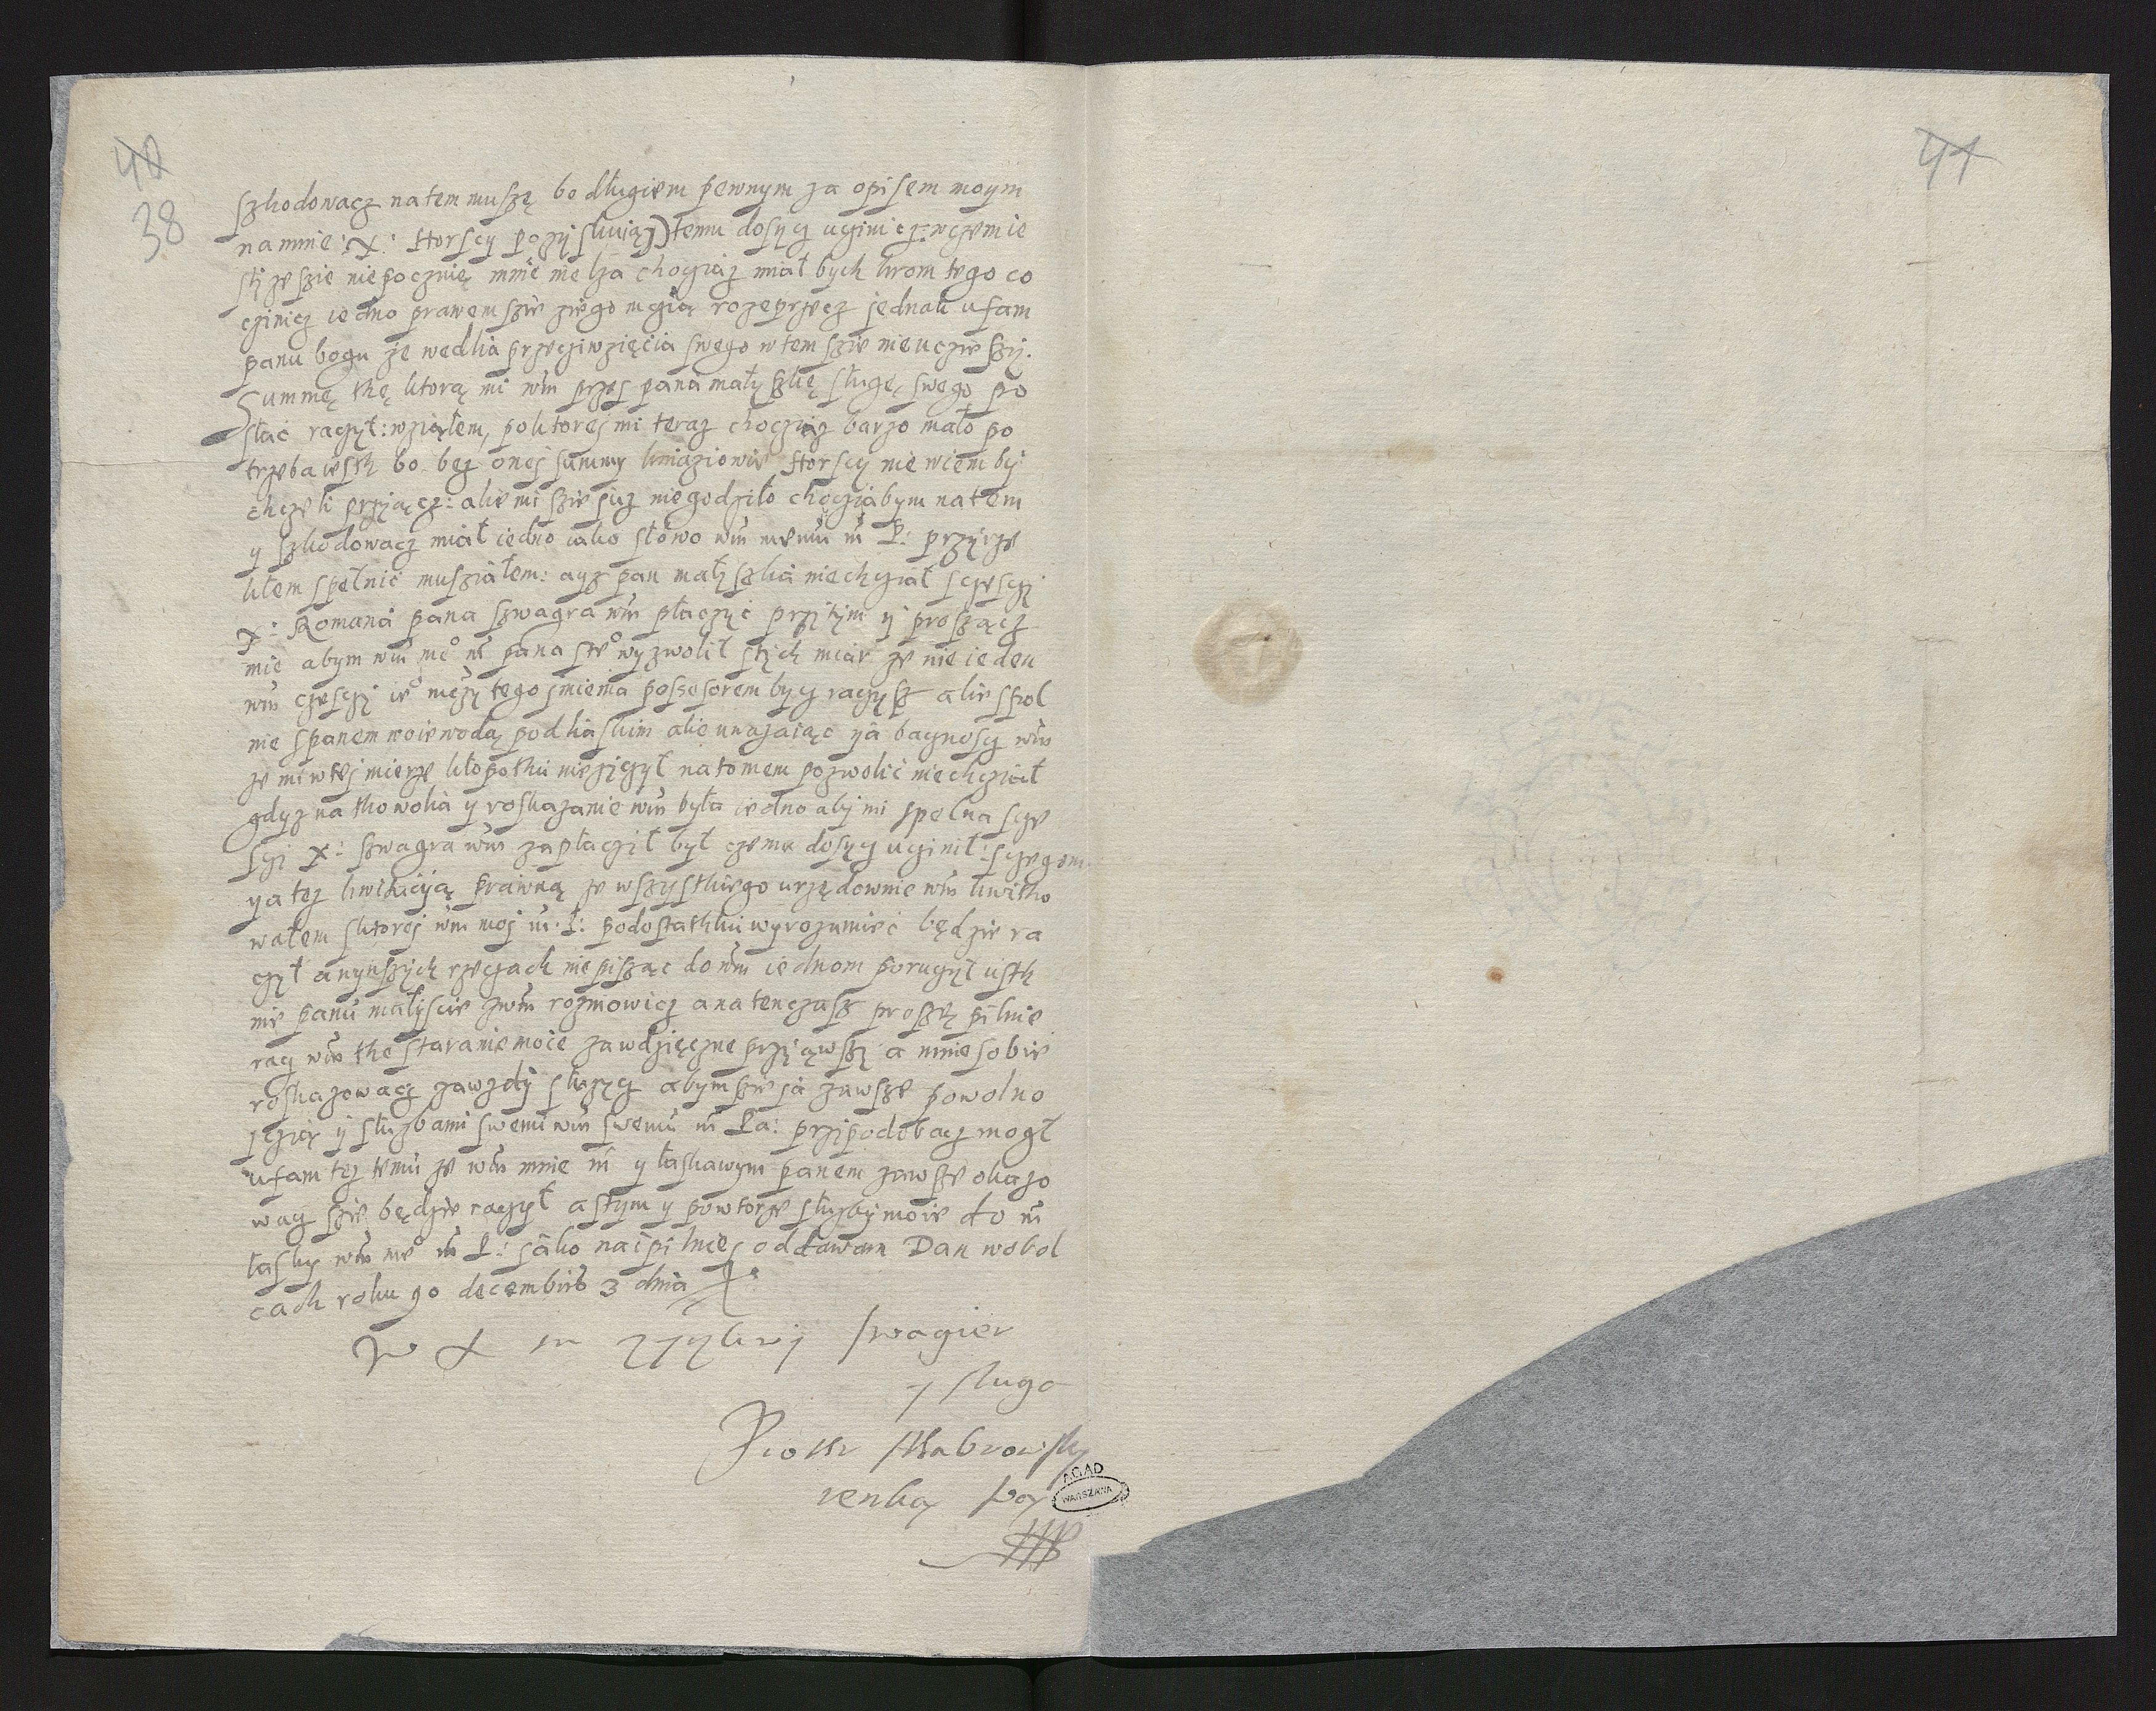 40
38
41
szkodowacz na tem muszę bo długiem pewnym za opisem moym
na mnie: X: Horscy pozyskuią) temu dosycz uciniez: wczemie
stj ze szie niepocznię mnie nielza chociaz miał bych krom tego co
czinicz iedno prawem szie ziego mcią rozeprzecz jednak ufam
panu bogu że wedlia przeciwzięcia swego w tem szie nie uczie szy.
Summę thę ktorą mi wm przes pana małyszkę sługę swego po
słać raczył: wziąłem, po ktorej mi teraz chocziaz barzo mało po
trzeba iesth bo bez onej summy kniaziowie Horscy nie wiem by
chczeli przyjącz: alie mi szie juz niegodziło chocziabym na tem
y szkodowacz miał iedno iako słowo wm memu m P: przyrze
kłem spełnić musziałem: ayz pan małyszka nie chciał sczesczj
X: Romana pana szwagra wm płaczyć przitym y proszącz
mie abym wm me° m pana ste° wyzwolil stych miar ze nie ieden
wm czesczj ie° mczy tego imienia possesorem bycz raczysz alie spol
nie s panem woiewodą podliaskim alie uwazaiąc ya bacznoscz wm
ze mi w tej mierze kłopothu nie zyczył na to mem pozwolić nie chcział
gdyz na tho wolia y roskazanie wm była iedno aby mi spelna scze
sczj X: szwagra wm zapłacził był czemu dosycz ucinił: sczegom
ya tez kwitaciją prawną ze wszystkiego urzędownie wm kwitho
wałem sktorej wm moj m. P: podostathku wyrozumieć będzie ra
czył a ynszych rzeczach nie pisząc do wm iednom poruczył usth
nie panu małyscie zwm rozmowicz a na tenczasz proszę pilnie
racz wm the staranie moie za wdzięczne przyjąwszy a mnie sobie
roskazowacz zawzdy służycz abym szie ja zawsze powolno
sczią y służbami swemi wm swemu m Pa: przipodobacz mogł
ufam tez temu że wm mnie m y łaskawym panem zawsze okazo
wacz szie będzie raczył a stym y powtorze służby moie do m
łasky wm me° m P: jako naipilniej oddawam Dan w obol
cach roku 90 decembris 3 dnia
W X m zyzliwj swagier
y sluga
Piotr sthabrowsky
renką swą
AGAD
WARSZAWA